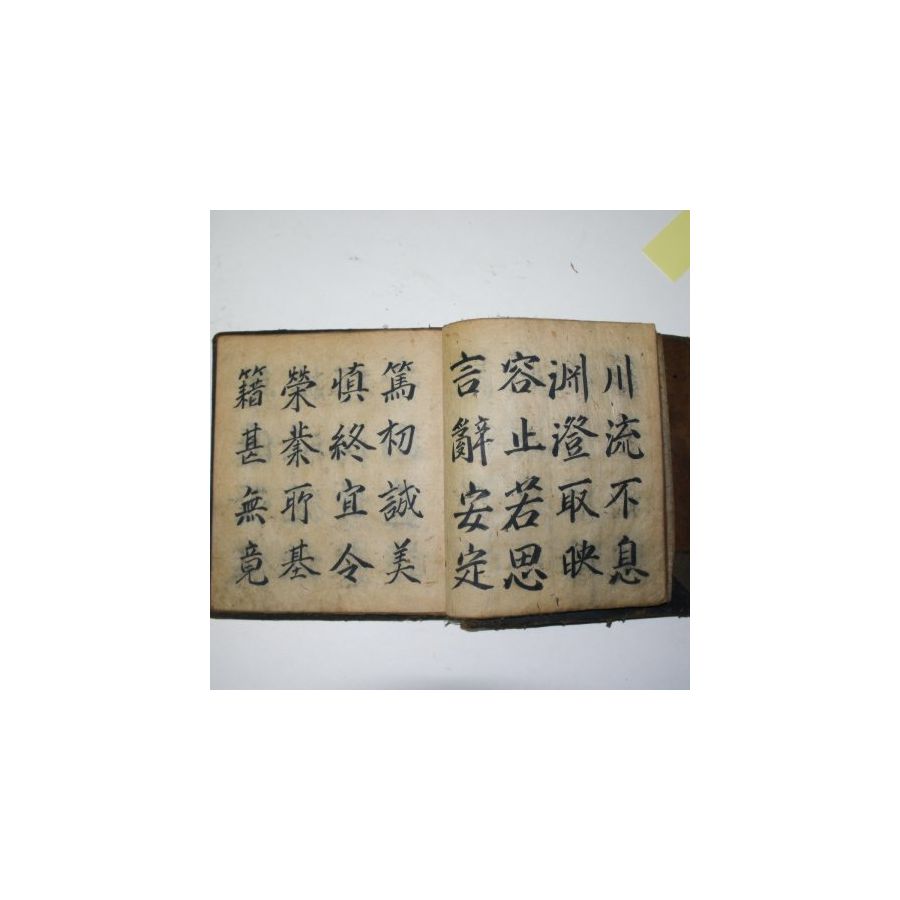 川流不息
渊澄取映
容止若思
言辭安定
篤初誠美
慎終宜令
榮業所基
籍甚無竟